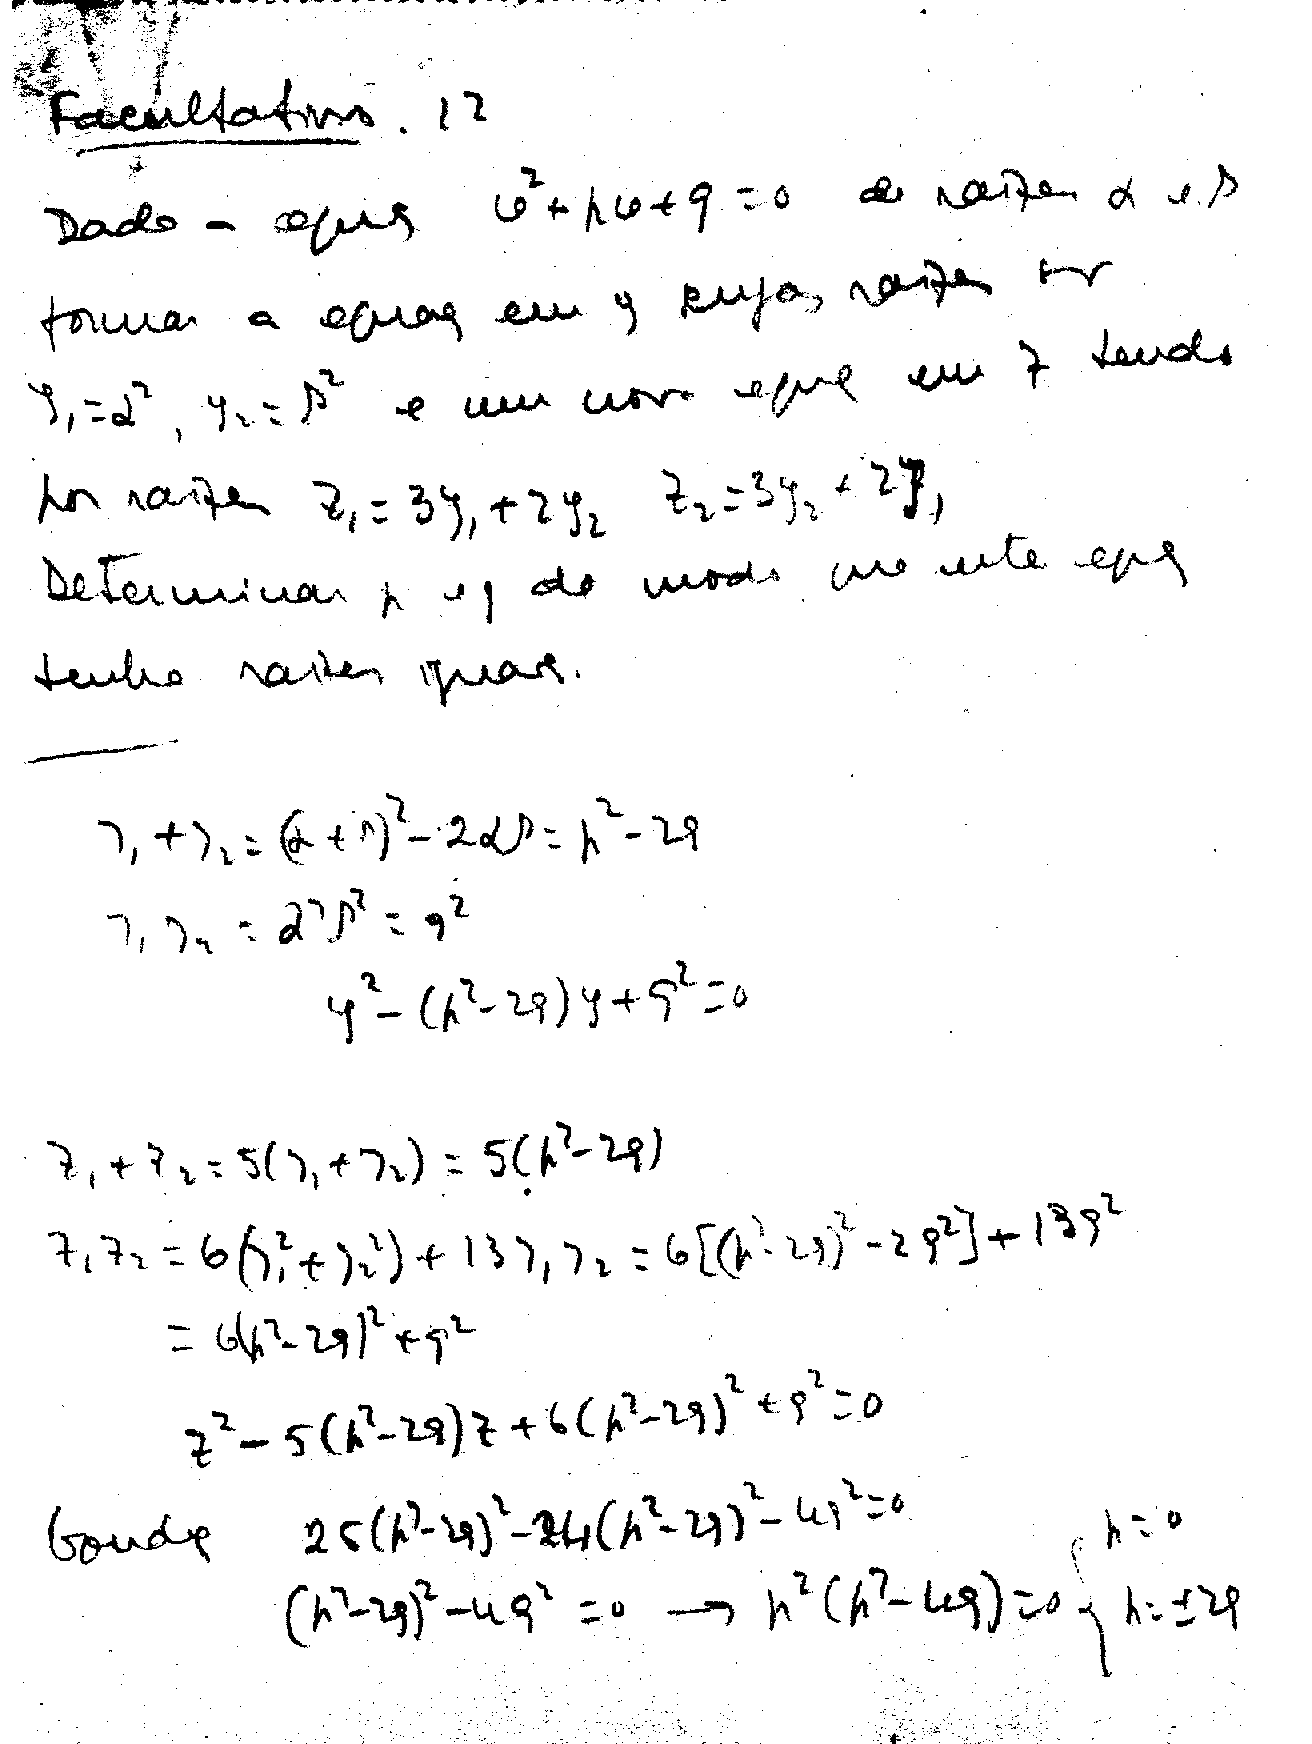 Facultativo. 12
Dado a equaç x² + px + q = 0 de raizes α e β
formar a equaç em y cujas raizes
y₁ = α², y₂ = β² e um novo equaç em z tendo
por raizes z₁ = 3y₁ + 2y₂ z₂ = 3y₂ + 2y₁
Determinar p e q de modo que este equaç
tenha raizes iguais.
y₁ + y₂ = (α + β)² - 2αβ = p² - 2q
y₁ y₂ = α² β² = q²
y² - (p² - 2q) y + q² = 0
z₁ + z₂ = 5(y₁ + y₂) = 5(p² - 2q)
z₁ z₂ = 6(y₁² + y₂²) + 13 y₁ y₂ = 6[(p² - 2q)² - 2q²] + 13q²
= 6(p² - 2q)² + q²
z² - 5(p² - 2q) z + 6(p² - 2q)² + q² = 0
25(p² - 2q)² - 24(p² - 2q)² - 4q² = 0
(p² - 2q)² - 4q² = 0 → p² (p² - 4q) = 0 { p = 0
p = ± 2q